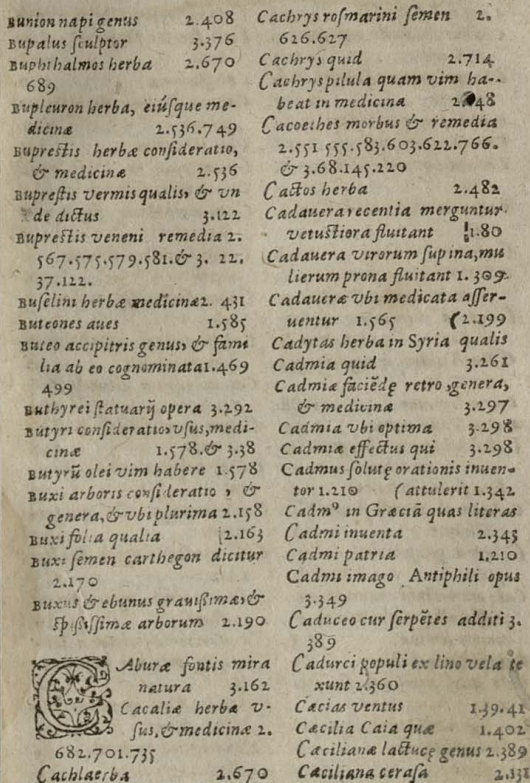 Bunion napi genus 2.408
Bupalus ſculptor 3.376
Buphthalmos herba 2.670
689
Bupleuron herba, eiúſque me-
dicinæ 2.536.749
Bupreſtis herbæ conſideratio,
& medicinæ 2.536
Bupreſtis vermis qualis, & vn
de dictus 3.122
Bupreſtis veneni remedia 2.
567.575.579.581.& 3. 22.
37.122.
Buſelini herbæ medicinæ2. 431
Buteones aues 1.585
Buteo accipitris genus, & fami
lia ab eo cognominata1.469
499
Buthyrei ſtatuarij opera 3.292
Butyri conſideratio, vſus, medi-
cinæ 1.578.& 3.38
Butyrū olei vim habere 1.578
Buxi arboris conſideratio , &
genera, & vbi plurima 2.158
Buxi folia qualia 2.163
Buxi ſemen carthegon dicitur
2.170
Buxus & ebunus grauißimæ, &
ſpißiſſimæ arborum 2.190
CAburæ fontis mira
natura 3.162
Cacaliæ herbæ v-
ſus, & medicinæ 2.
682.701.735
Cachlaerba 2.670
Cachrys roſmarini ſemen 2.
626.627
Cachrys quid 2.714
Cachrys pilula quam vim ha-
beat in medicina 48
Cacoethes morbus & remedia
2.551 555.583.603.622.766.
& 3.68.145.220
Cactos herba 2.482
Cadauera recentia merguntur
vetuſtiora fluitant 1.80
Cadauera virorum ſupina, mu
lierum prona fluitant 1.309
Cadaueræ vbi medicata aſſer-
uentur 1.565 (2.199
Cadytas herba in Syria qualis
Cadmia quid 3.261
Cadmiæ faciēdę retro , genera,
& medicinæ 3.297
Cadmia vbi optima 3.298
Cadmiæ effectus qui 3.298
Cadmus ſolutę orationis inuen-
tor 1.210 (attulerit 1.342
Cadmꝰ in Græciā quas literas
Cadmi inuenta 2.343
Cadmi patria 1.210
Cadmi imago Antiphili opus
3.349
Caduceo cur ſerpētes additi 3.
389
Cadurci populi ex lino vela te
xunt 2.360
Cæcias ventus 1.39.41
Cæcilia Caia quæ 1.402
Cæcilianæ lactucę genus 2.389
Cæciliana ceraſa